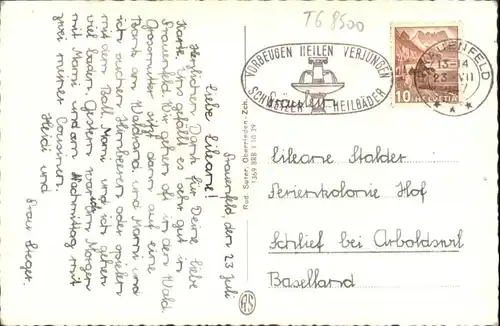 T6 8500
Frauenfeld, den 23 Juli
Liebe Lileane!
Herzlichen Dank für Deine liebe
Karte. Uns gefällt es sehr gut in
Frauenfeld. Wir gehen oft in den Wald.
Grossmutter sitzt dann auf eine
Bank am Waldrand und Mami und
ich suchen Himbeeren oder spielen
mit dem Ball. Mami und ich gehen
viel baden. Gestern war ich am Morgen
mit Mami und am Nachmittag mit
zwei meiner Cousinen.
Heidi und
Frau Sieger.
Rud. Suter, Oberrieden-Zch.
1369 BRB 1.10.39
RS
VORBEUGEN HEILEN VERJÜNGEN
SCHWEIZER HEILBÄDER
FRAUENFELD
13-14
23 VII
10 HELVETIA
Fräulein
Lileane Stalder
Ferienkolonie Hof
Schlief bei Arboldswil
Baselland